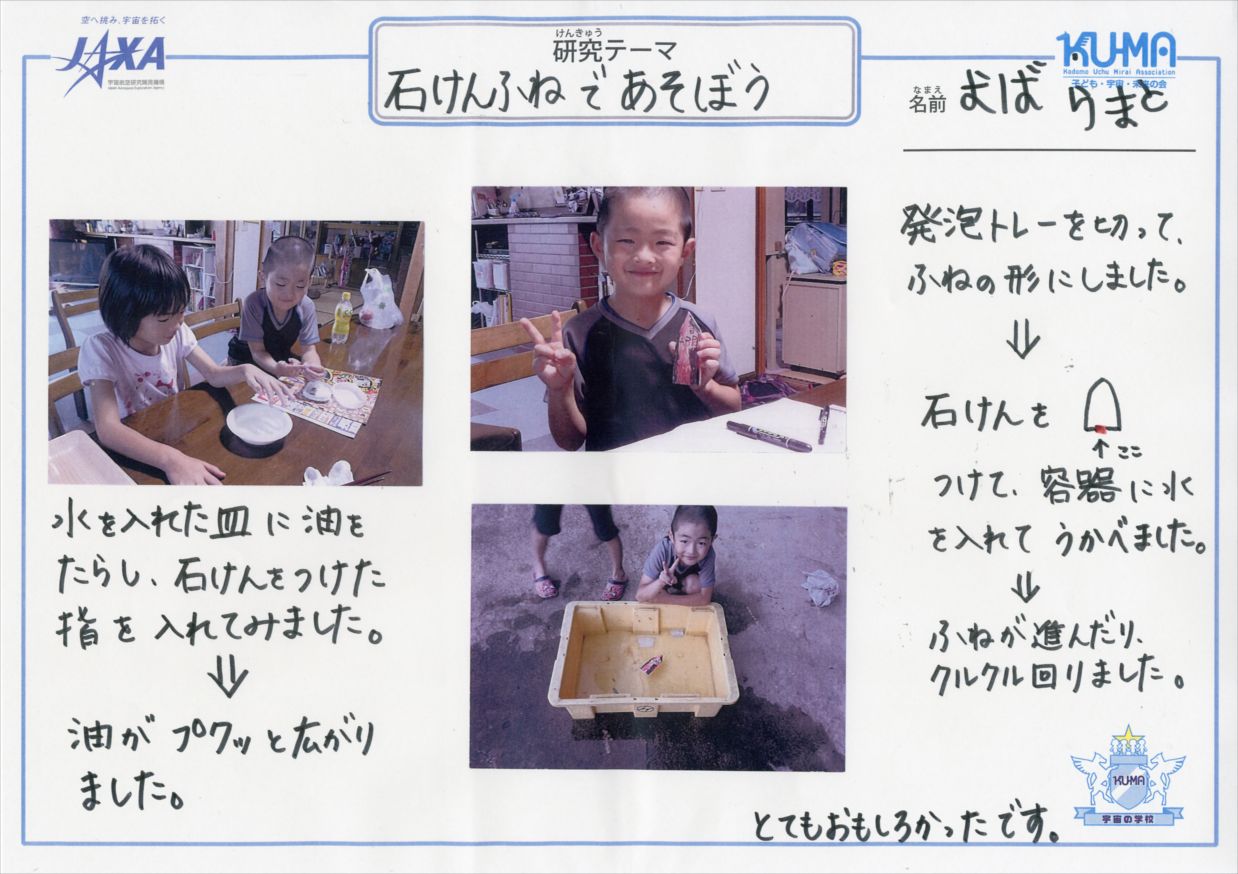 空へ挑み、宇宙を拓く
JAXA
宇宙航空研究開発機構
Japan Aerospace Exploration Agency
けんきゅう
研究テーマ
石けんふねであそぼう
KU-MA
Kodomo Uchu Mirai Association
子ども・宇宙・未来の会
なまえ
名前 よば らまと
水を入れた皿に油を
たらし、石けんをつけた
指を入れてみました。
⇓
油がプクッと広がり
ました。
発泡トレーを切って、
ふねの形にしました。
⇓
石けんを
↑ここ
つけて、容器に水
を入れてうかべました。
⇓
ふねが進んだり、
クルクル回りました。
とてもおもしろかったです。
KUMA
宇宙の学校